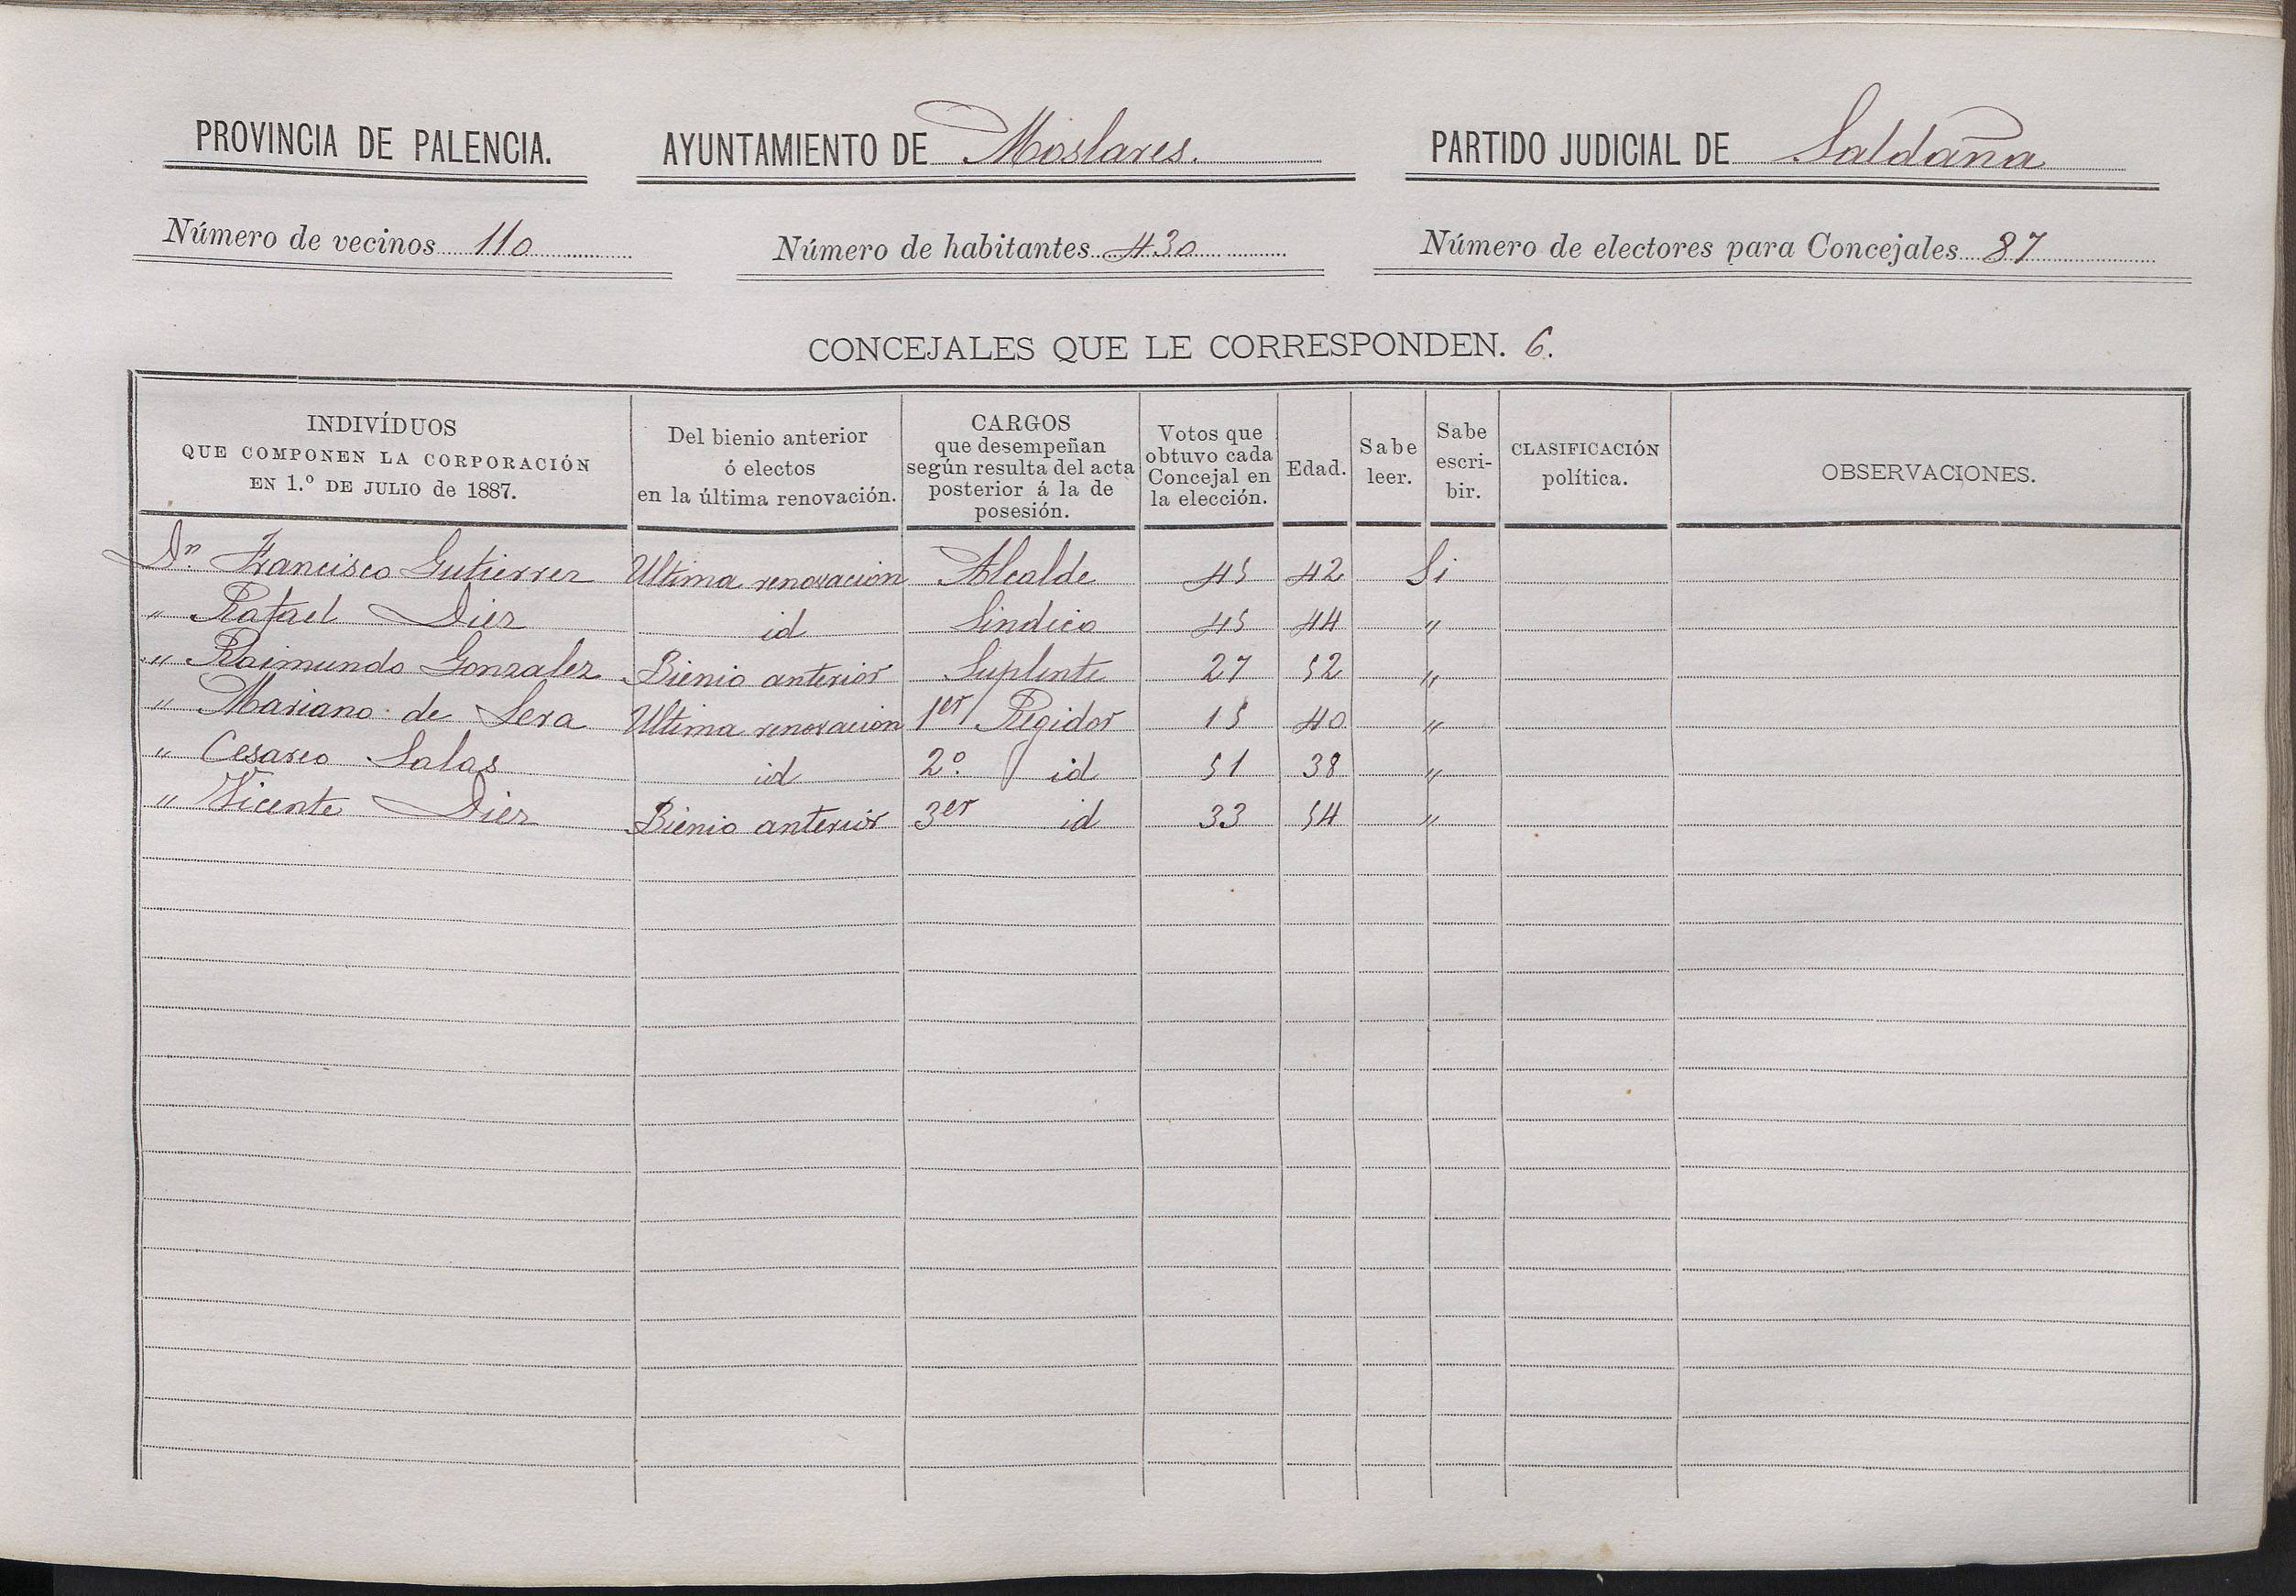 PROVINCIA DE PALENCIA. AYUNTAMIENTO DE Moslares. PARTIDO JUDICIAL DE Saldaña
Número de vecinos 110 Número de habitantes 430 Número de electores para Concejales 87
CONCEJALES QUE LE CORRESPONDEN. 6.
INDIVÍDUOS
QUE COMPONEN LA CORPORACIÓN
EN 1.º DE JULIO de 1887.
Del bienio anterior
ó electos
en la última renovación.
CARGOS
que desempeñan
según resulta del acta
posterior á la de
posesión.
Votos que
obtuvo cada
Concejal en
la elección.
Edad.
Sabe
leer.
Sabe
escri-
bir.
CLASIFICACIÓN
política.
OBSERVACIONES.
Dn. Francisco Gutierrez Ultima renovacion Alcalde 45 42 Si
" Rafael Diez id Sindico 45 44 "
" Raimundo Gonzalez Bienio anterior Suplente 27 52 "
" Mariano de Lera Ultima renovacion 1er Regidor 15 40 "
" Cesareo Salas id 2º. id 51 38 "
" Vicente Diez Bienio anterior 3er id 33 54 "